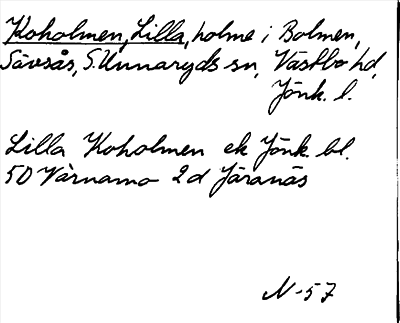 Koholmen, Lilla, holme i Bolmen,
Sävsås, S. Unnaryds sn, Västbo hd,
Jönk. l.
Lilla Koholmen ek Jönk. bl.
50 Värnamo 2d Järanäs
N-57